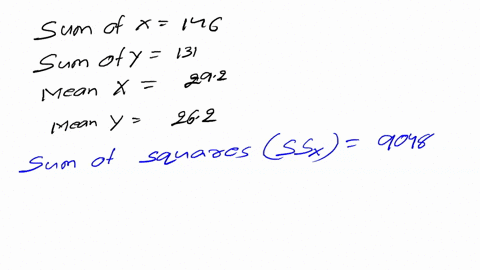 Sum of x = 146
Sum of Y = 131
Mean X = 29.2
Mean Y = 26.2
Sum of squares (SSx) = 9048